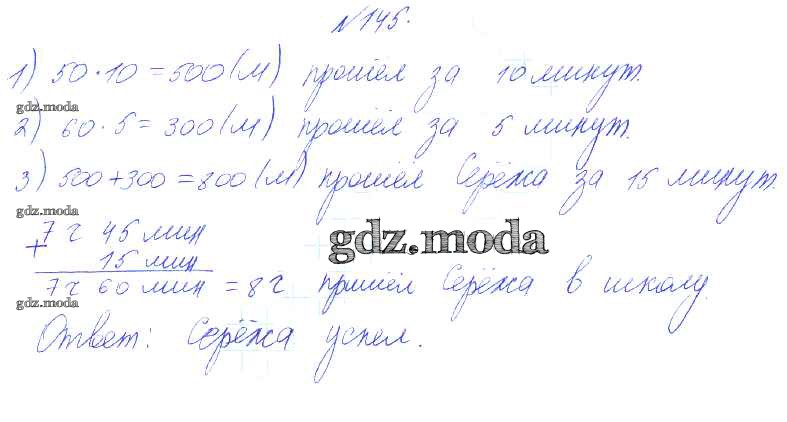 №145.
1) 50·10=500(м) прошёл за 10 минут.
gdz.moda
2) 60·5=300(м) прошёл за 5 минут.
3) 500+300=800(м) прошёл Серёжа за 15 минут.
gdz.moda
7 г 45 мин
+ gdz.moda
15 мин
7г 60 мин = 8г пришёл Серёжа в школу.
gdz.moda
Ответ: Серёжа успел.